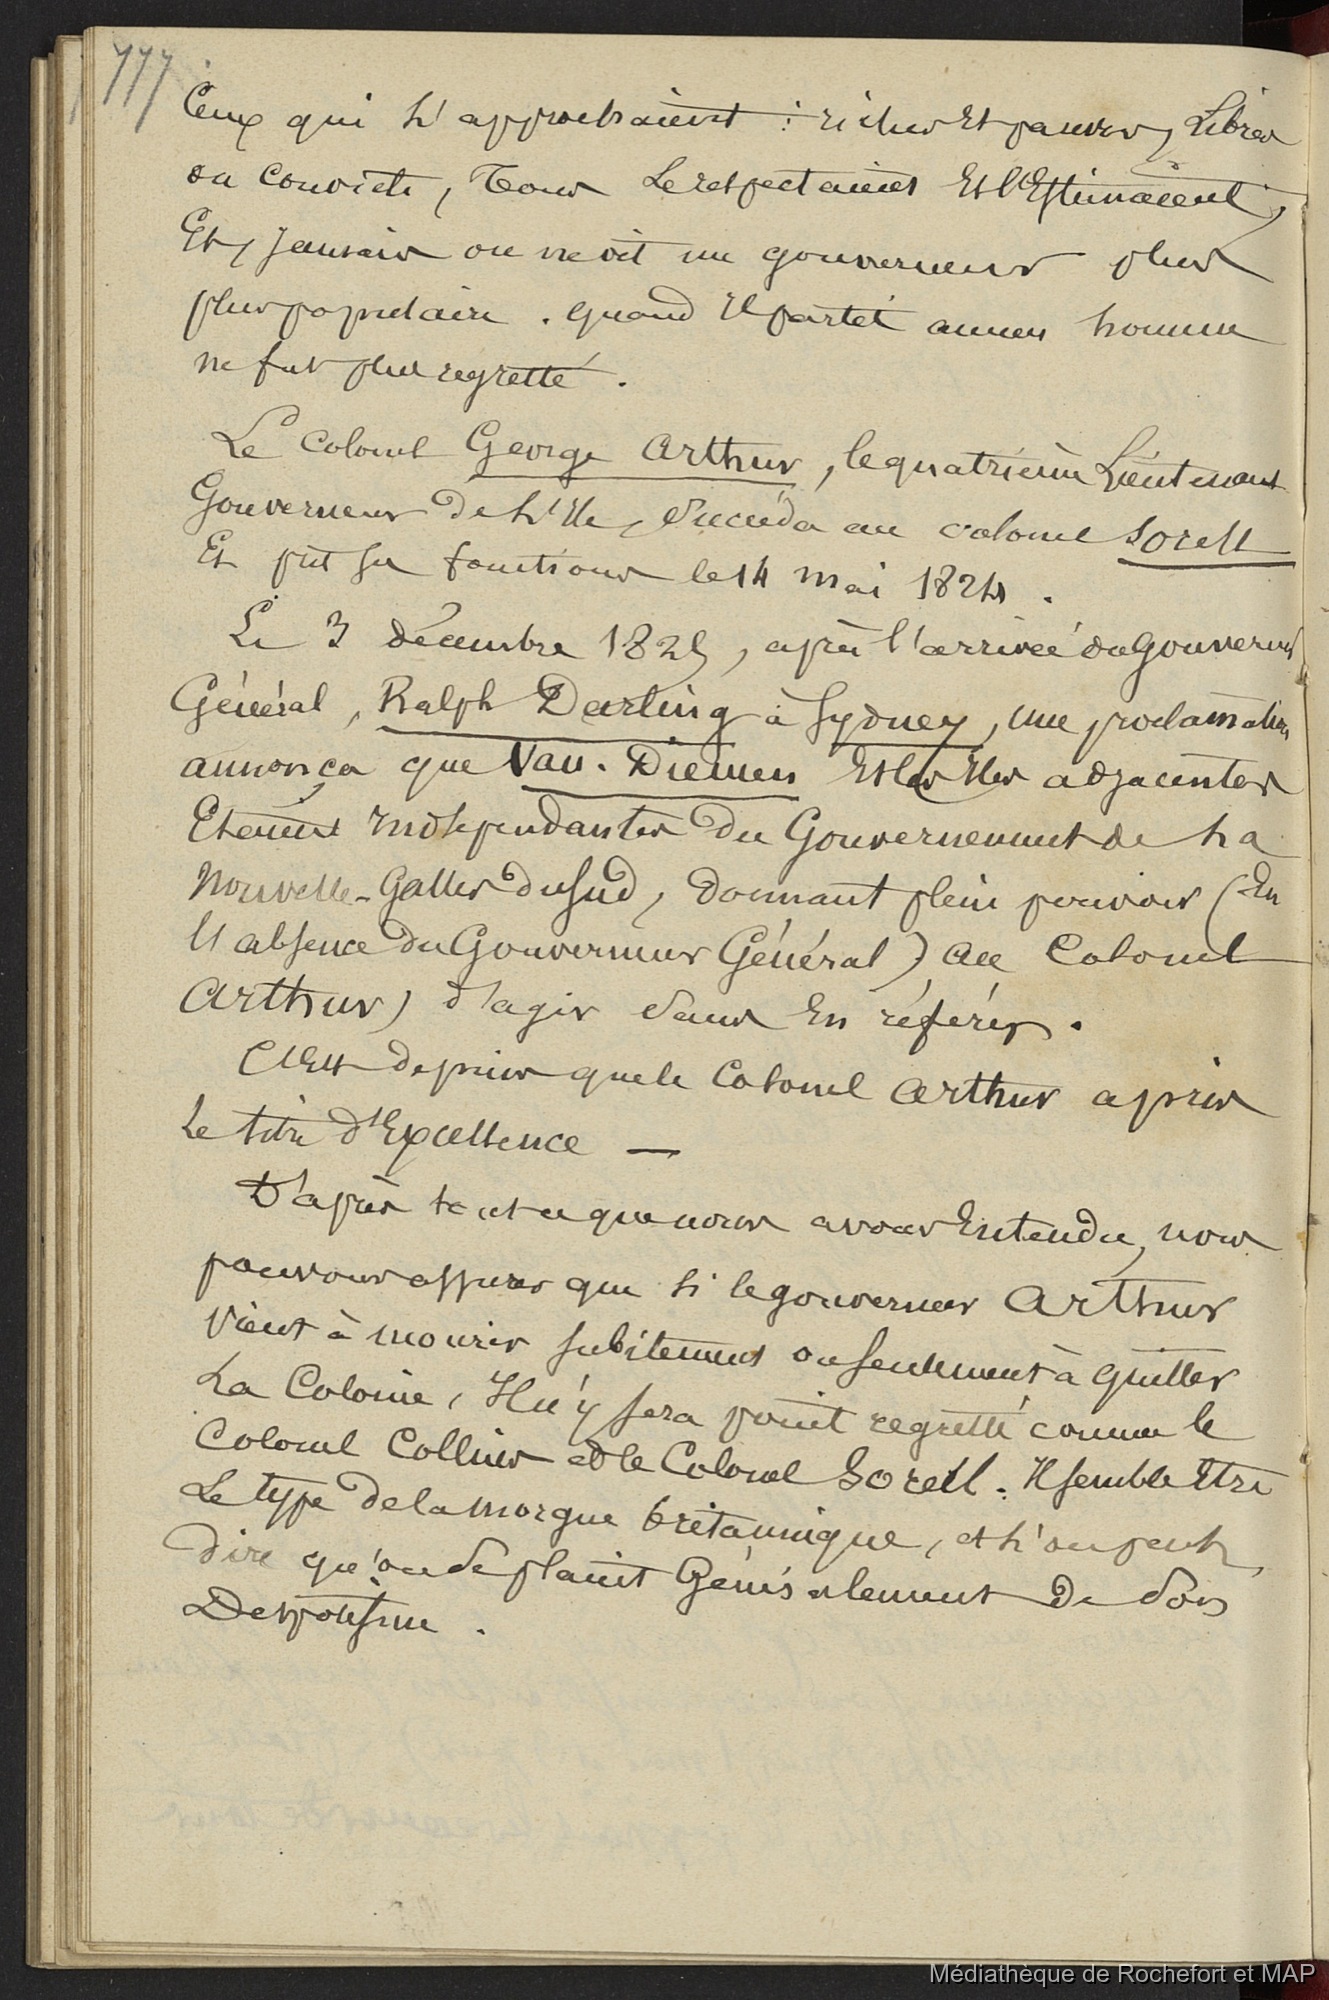 777
Ceux qui l'approchaient : riches et pauvres, Libres
ou convicts, Tous le respectaient et l'Estimaient,
Et, Jamais on ne vit un gouverneur plus
plus populaire. quand Il partit aucun homme
ne fut plus regretté.
Le Colonel George Arthur, le quatrième Lieutenant
Gouverneur de l'Ile, Succéda au colonel Sorell
Et prit ses fonctions le 14 mai 1824.
Le 3 décembre 1825, après l'arrivée du Gouverneur
Général, Ralph Darling à Sydney, une proclamation
annonça que Van-Diemen Et les Iles adjacentes
Etaient Indépendantes du Gouvernement de la
Nouvelle-Galles du Sud, donnant plein pouvoir (En
l'absence du Gouverneur Général) au Colonel
Arthur, d'agir Sans En référer.
C'Est depuis que le Colonel Arthur a pris
le titre d'Excellence —
D'après tout ce que nous avons Entendu, nous
pouvons assurer que si le gouverneur Arthur
vient à mourir subitement ou seulement à quitter
la Colonie, Il n'y sera point regretté comme le
Colonel Collins et le Colonel Sorell. Il semble être
le type de la morgue britannique, et l'on peut
dire qu'on se plaint Généralement de Son
Despotisme.
Médiathèque de Rochefort et MAP